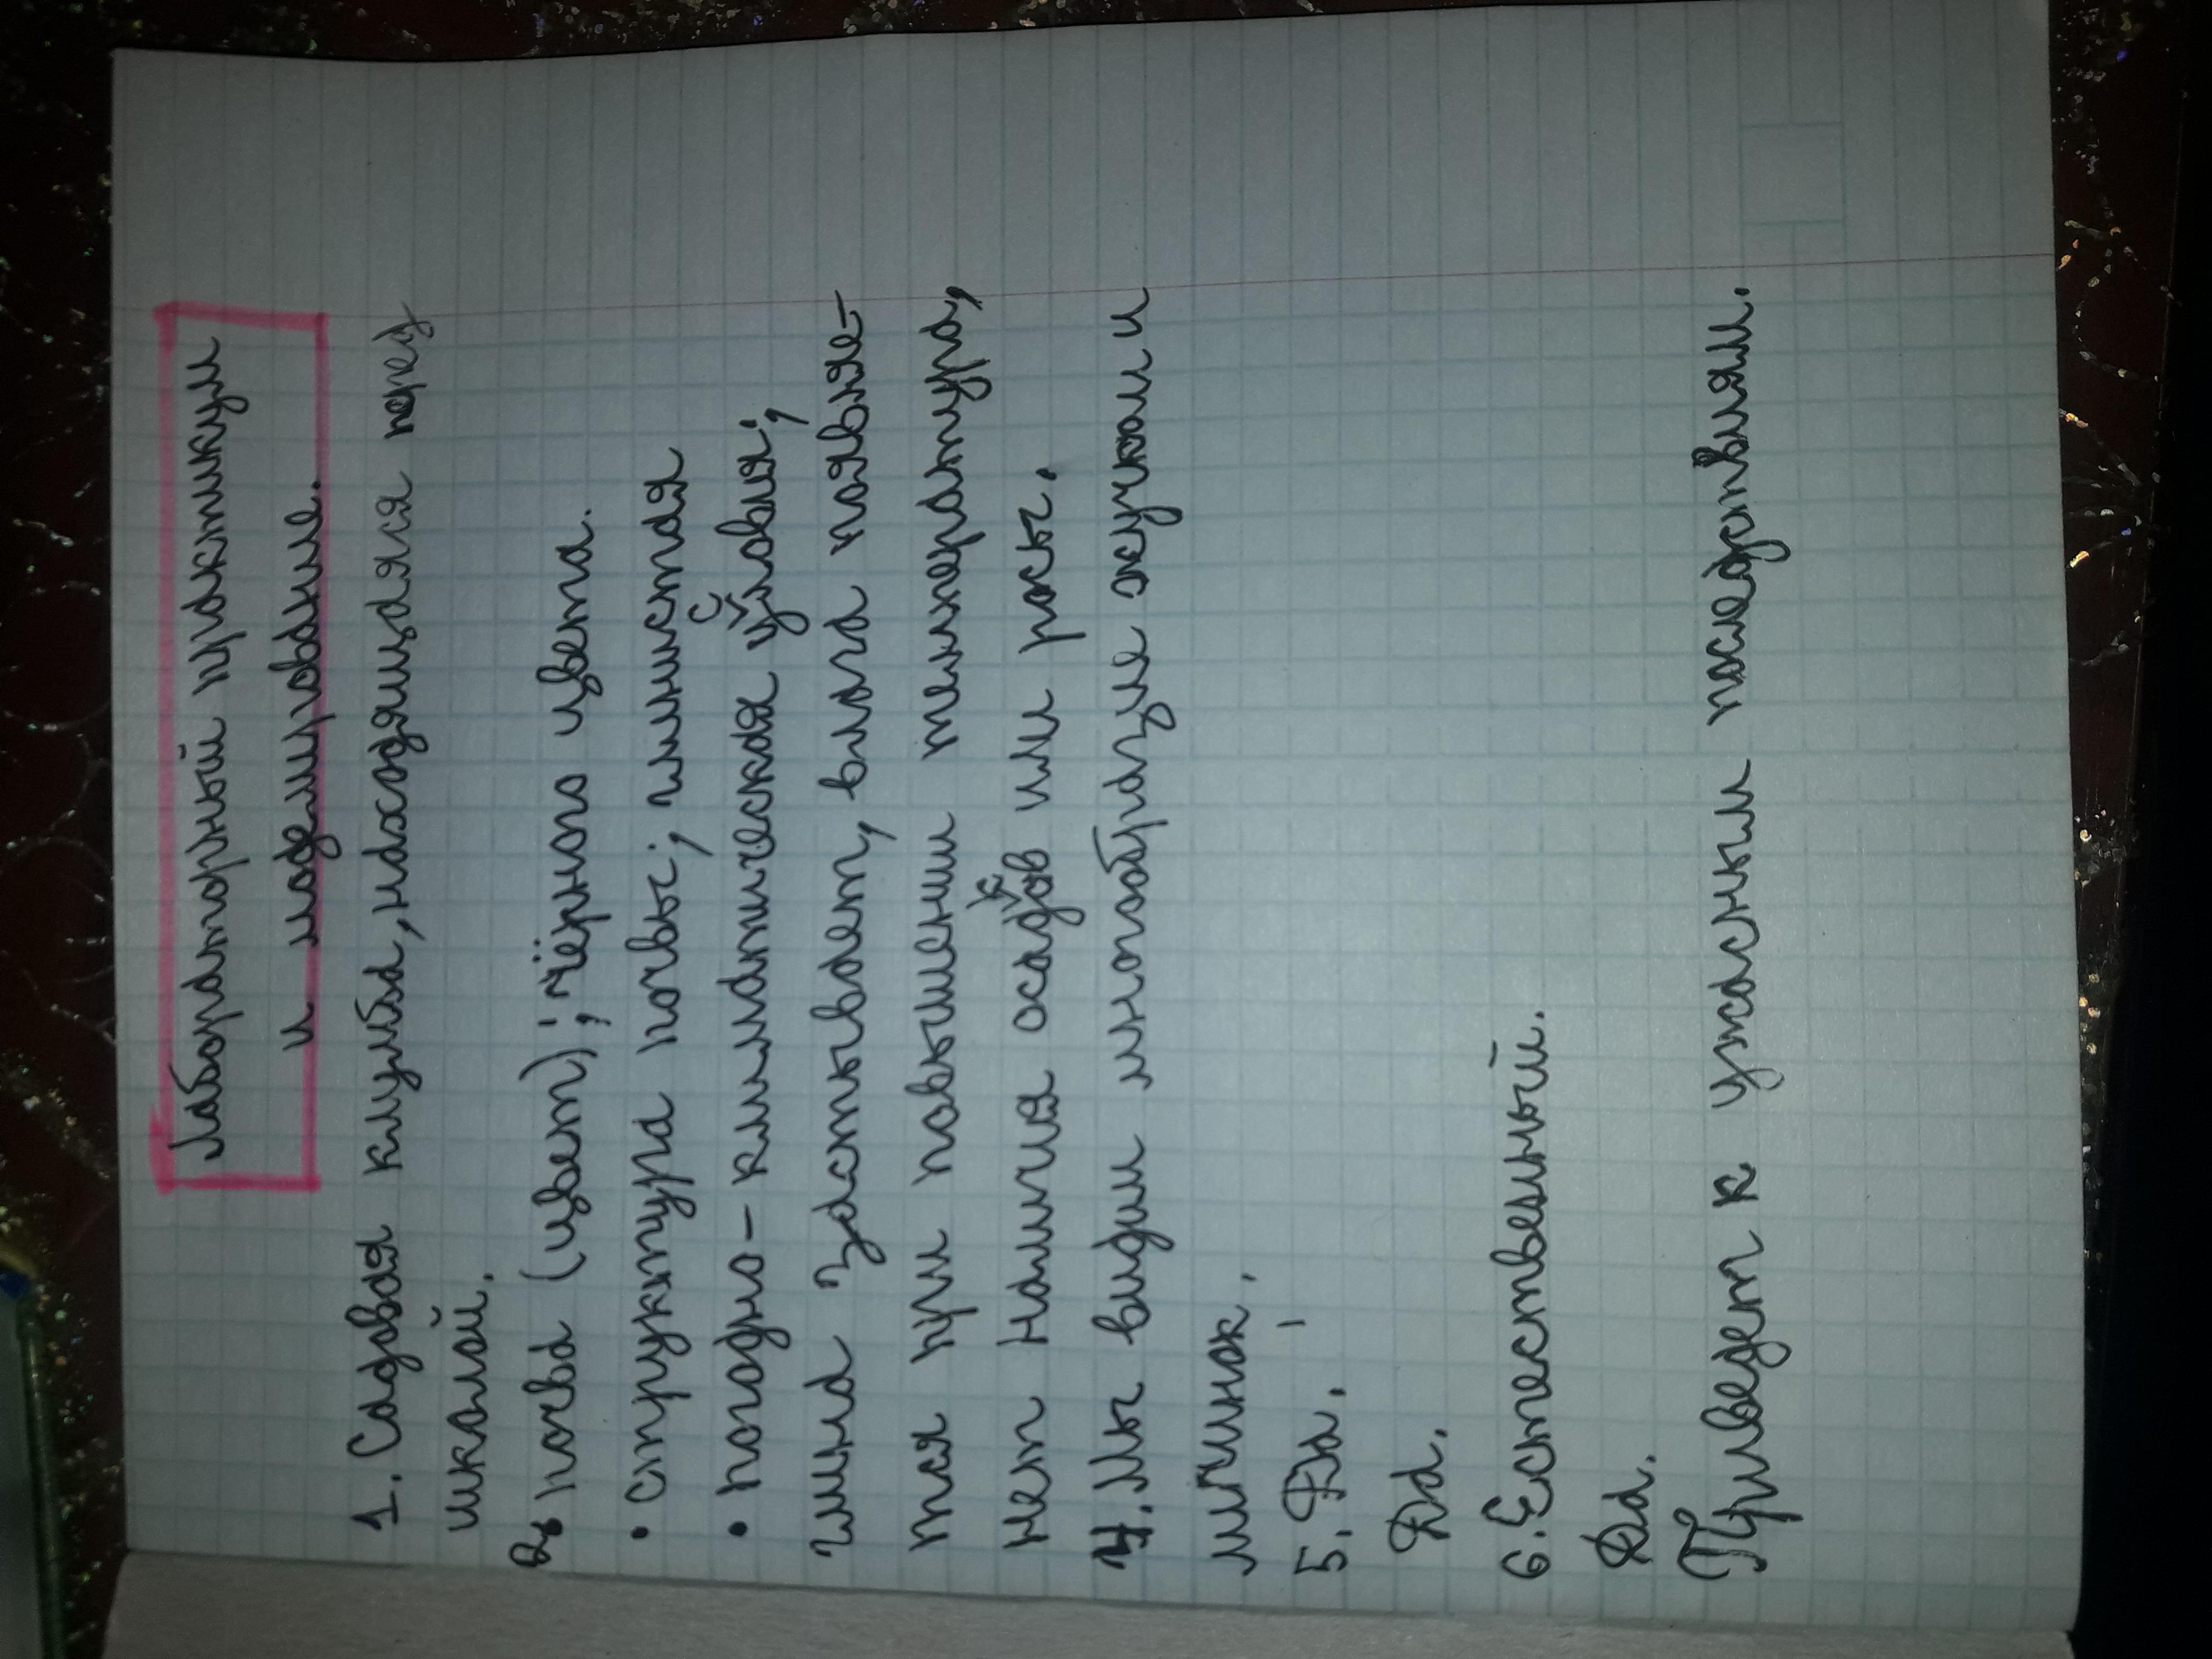 Лабораторный практикум
и моделирование.
1. Садовая клумба, находящаяся перед
школой.
2. почва (цвет); чёрного цвета.
• структура почвы; глинистая
• погодно-климатическая условия;
глина застывает, влага появляе-
тся при повышении температура,
нет наличия осадков или росы.
4. Мы видим многобразие жучками и
личинок.
5. Да.
Да.
6. Естественный.
Да.
Приведет к ужасным последствиям.